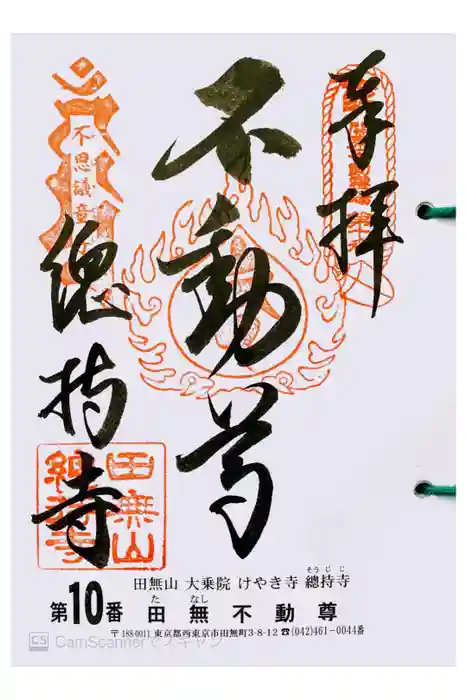 奉拝
不動尊
總持寺
不思議童
田無山
總持寺
田無山 大乗院 けやき寺 總持寺
そうじじ
第10番 田無不動尊
た なし
〒188-0011 東京都西東京市田無町3-8-12 ☎(042)461-0044番
CS CamScannerでスキャン